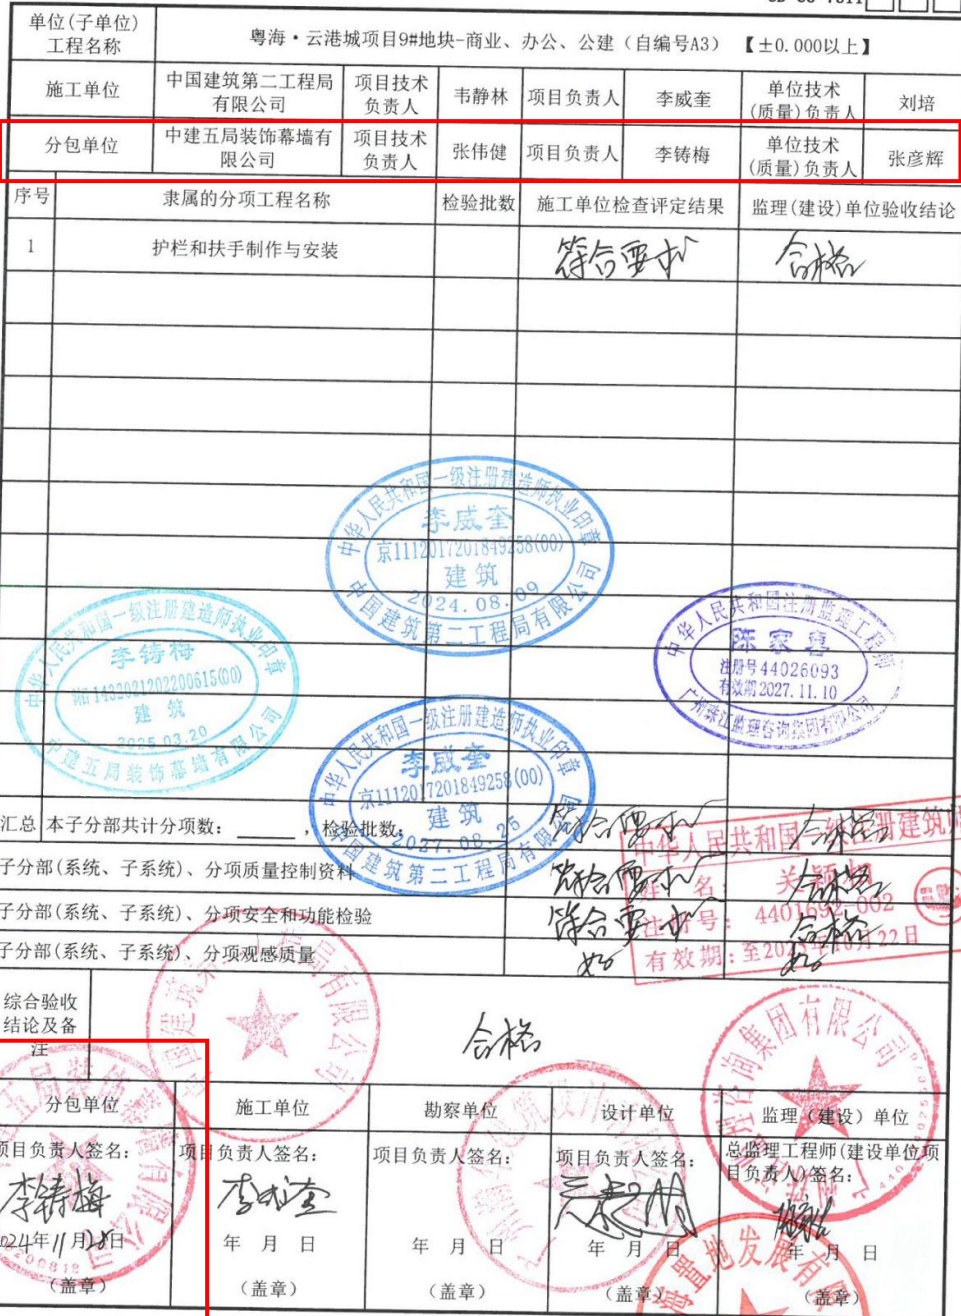 单位(子单位)
工程名称
粤海·云港城项目9#地块-商业、办公、公建（自编号A3）【±0.000以上】
施工单位
中国建筑第二工程局
有限公司
项目技术
负责人
韦静林
项目负责人
李威奎
单位技术
(质量)负责人
刘培
分包单位
中建五局装饰幕墙有
限公司
项目技术
负责人
张伟健
项目负责人
李铸梅
单位技术
(质量)负责人
张彦辉
序号
隶属的分项工程名称
检验批数
施工单位检查评定结果
监理(建设)单位验收结论
1
护栏和扶手制作与安装
符合要求
合格
中华人民共和国一级注册建造师执业印章
李威奎
京1112017201849258(00)
建筑
2024.08.09
中国建筑第二工程局有限公司
中华人民共和国一级注册建造师执业印章
李铸梅
建筑
2025.03.20
中建五局装饰幕墙有限公司
中华人民共和国注册监理工程师
陈家
注册号44026093
有效期2027.11.10
广州珠江监理咨询集团有限公司
中华人民共和国一级注册建造师执业印章
李威奎
京1112017201849258(00)
建筑
2027.08.25
中国建筑第二工程局有限公司
汇总
本子分部共计分项数：
，检验批数：
符合要求
合格
子分部(系统、子系统)、分项质量控制资料
符合要求
合格
子分部(系统、子系统)、分项安全和功能检验
符合要求
合格
子分部(系统、子系统)、分项观感质量
好
好
中华人民共和国一级注册建筑师
姓名：
注册号：4401692-002
有效期：至
综合验收
结论及备
注
合格
分包单位
施工单位
勘察单位
设计单位
监理（建设）单位
项目负责人签名：
项目负责人签名：
项目负责人签名：
项目负责人签名：
总监理工程师(建设单位项
目负责人)签名：
李铸梅
李威奎
2024年11月28日
年 月 日
年 月 日
年 月 日
年 月 日
（盖章）
（盖章）
（盖章）
（盖章）
（盖章）